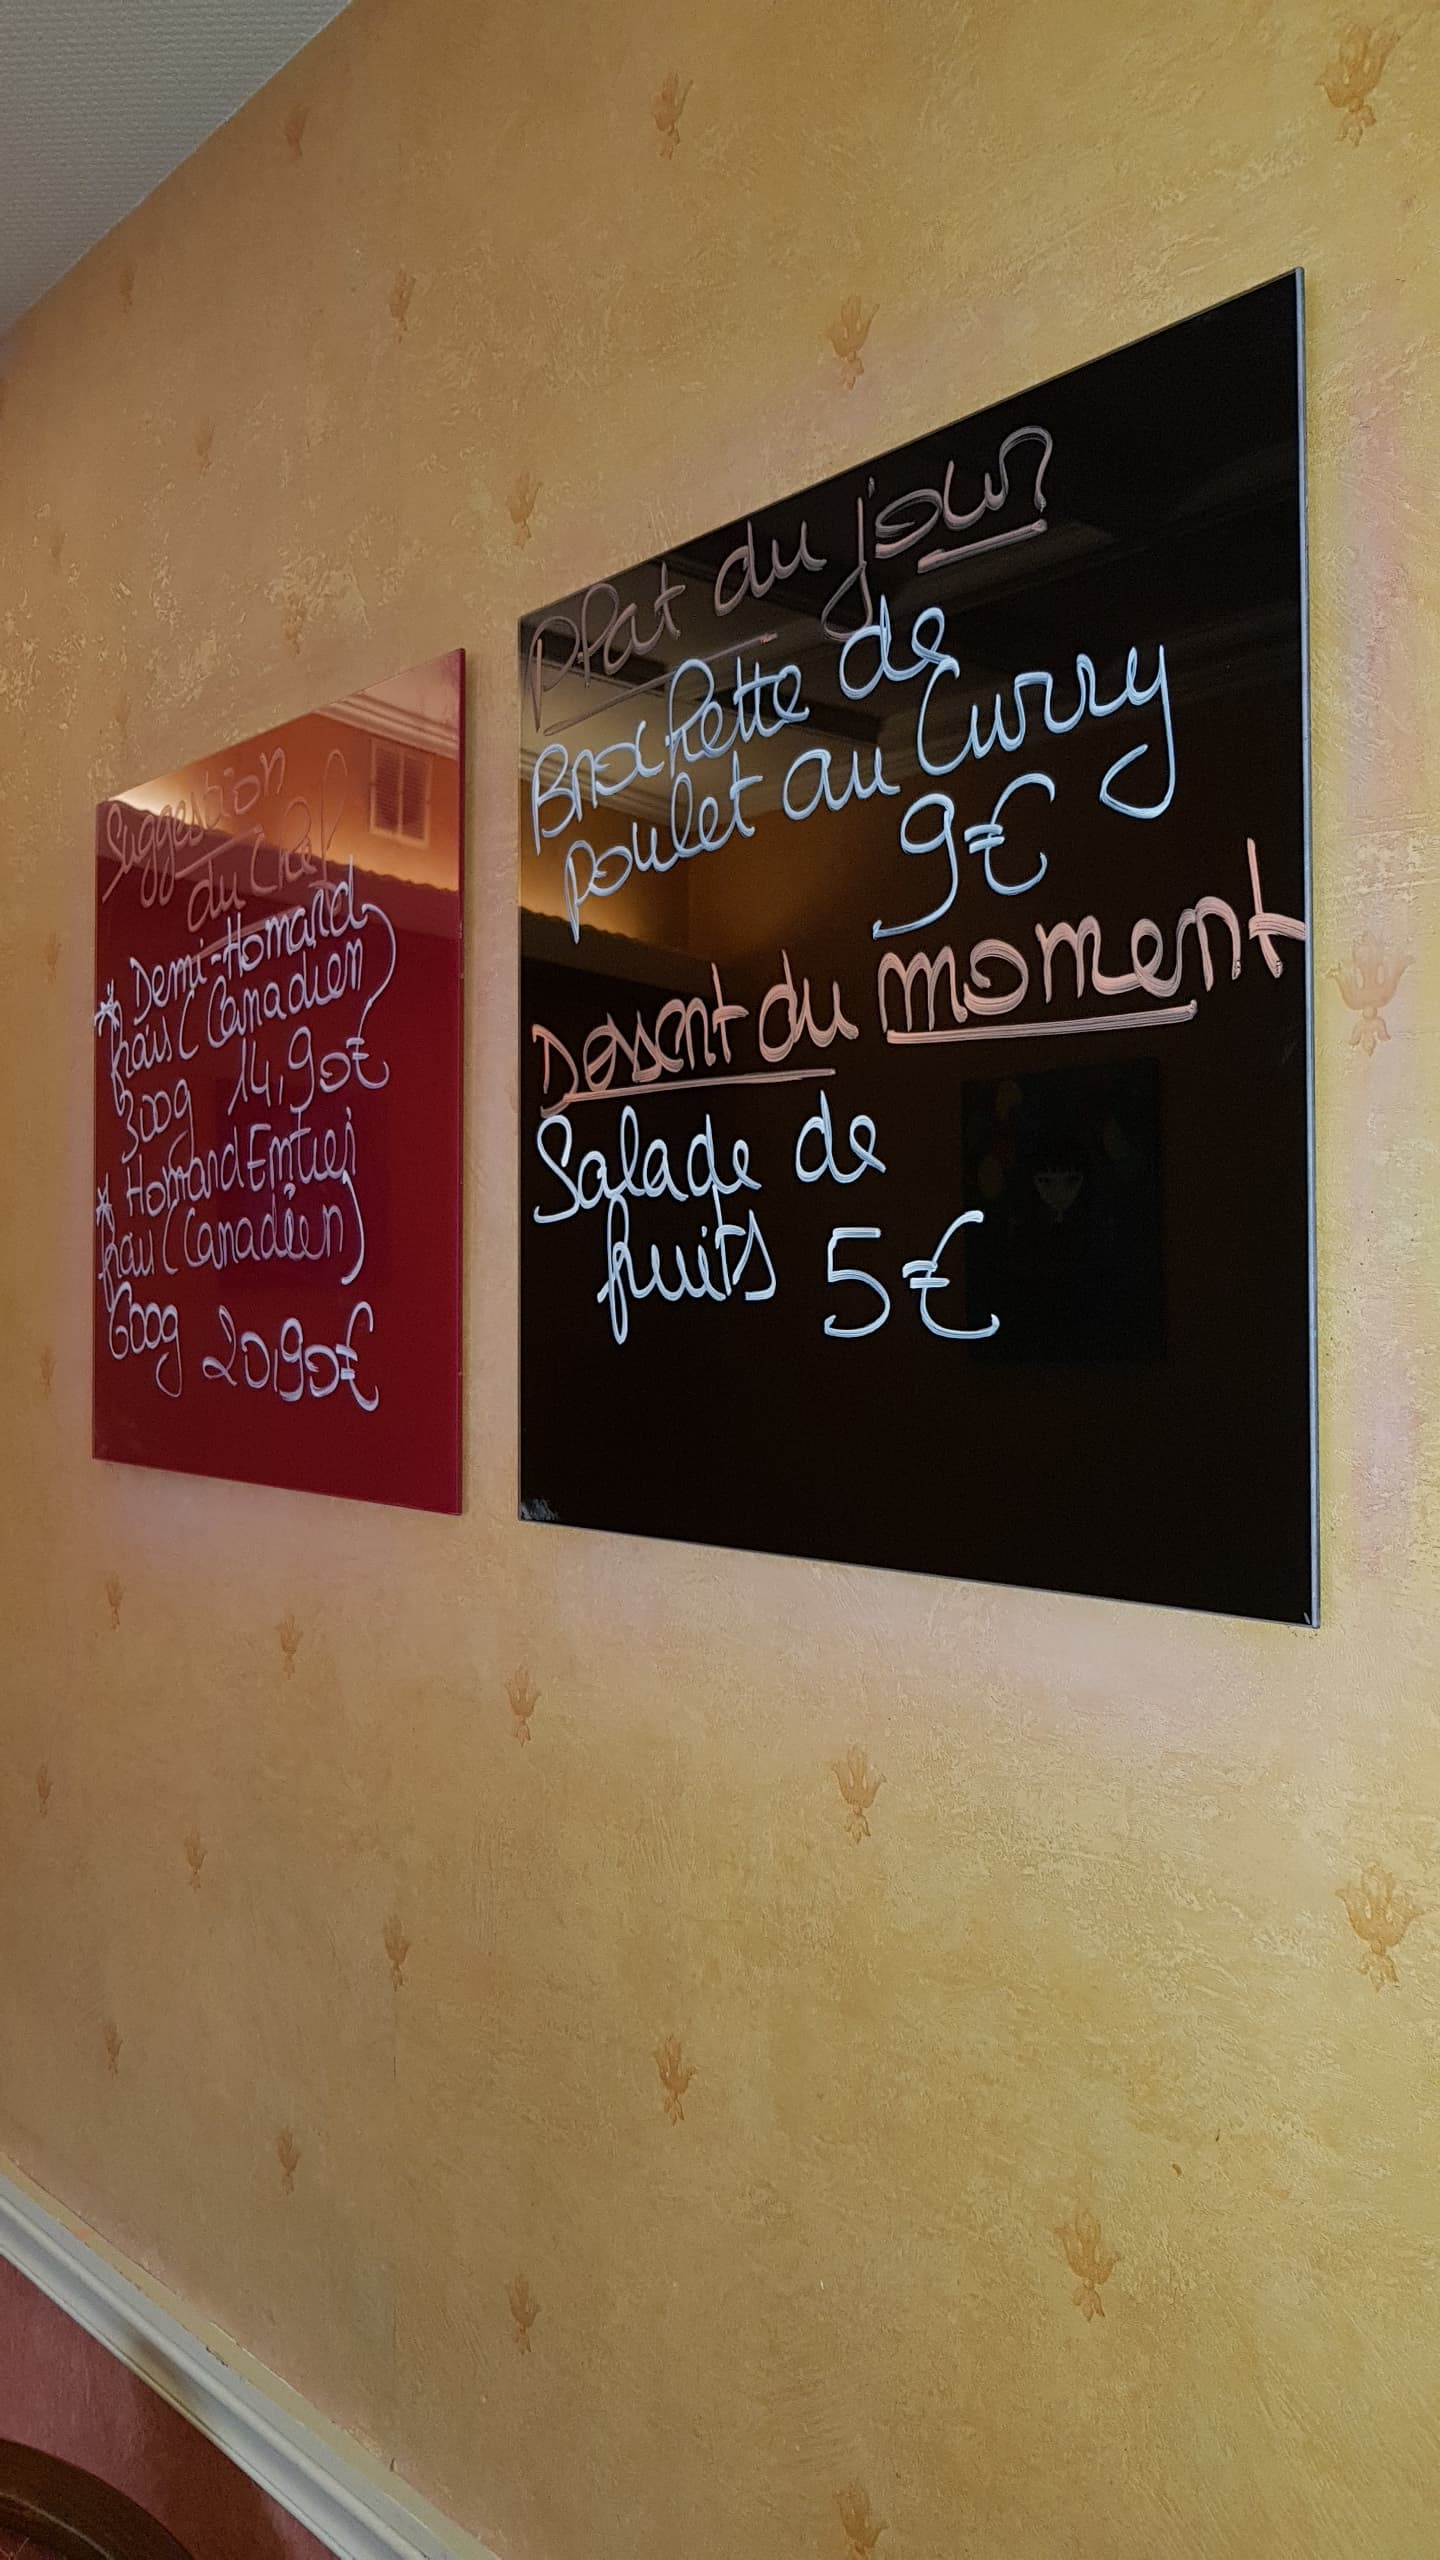 Suggestion
du Chef
* Demi-Homard
frais (Canadien)
300g 14,90€
* Homard Entier
frais (Canadien)
600g 20,90€
Plat du jour
Brochette de
poulet au Curry
9€
Dessert du moment
Salade de
fruits 5€